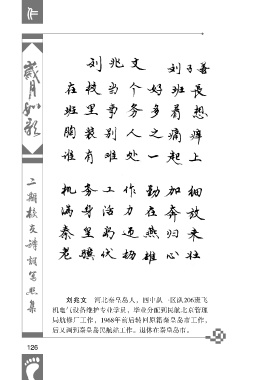 作
岁月如歌
二期校友诗词写照集
刘兆文 刘子善
在校当个好班长
班里事务多着想
胸装别人之痛痒
谁有难处一起上
机务工作勤加细
满身活力在奔放
秦皇岛迎燕归来
老骥伏枥雄心壮
刘兆文 河北秦皇岛人，四中队一区队206班飞
机电气设备维护专业学员，毕业分配到民航北京管理
局航修厂工作，1968年前后转回原籍秦皇岛市工作，
后又调到秦皇岛民航站工作。退休在秦皇岛市。
126